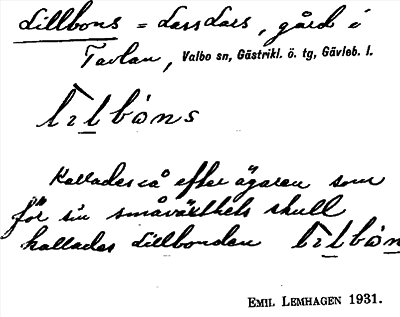 Lillbons = LarsLars, gård i
Tavlan, Valbo sn, Gästrikl. ö. tg, Gävleb. l.
Kallades så efter ägaren som
för sin småväxthets skull
kallades Lillbonden
EMIL LEMHAGEN 1931.